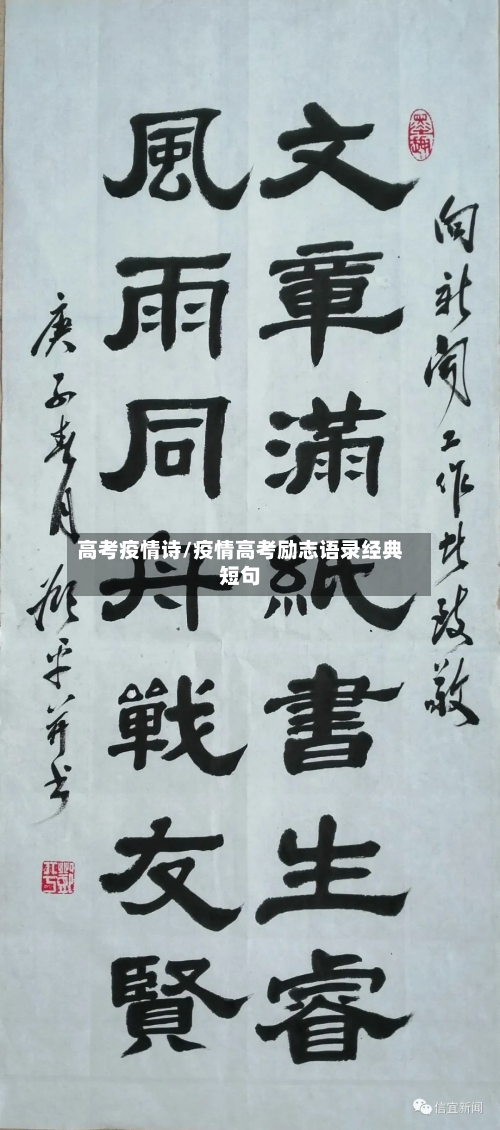 向新闻工作者致敬
文章滿紙書生睿
風雨同舟戰友賢
庚子春月
平并书
高考疫情诗/疫情高考励志语录经典
短句
信宜新闻